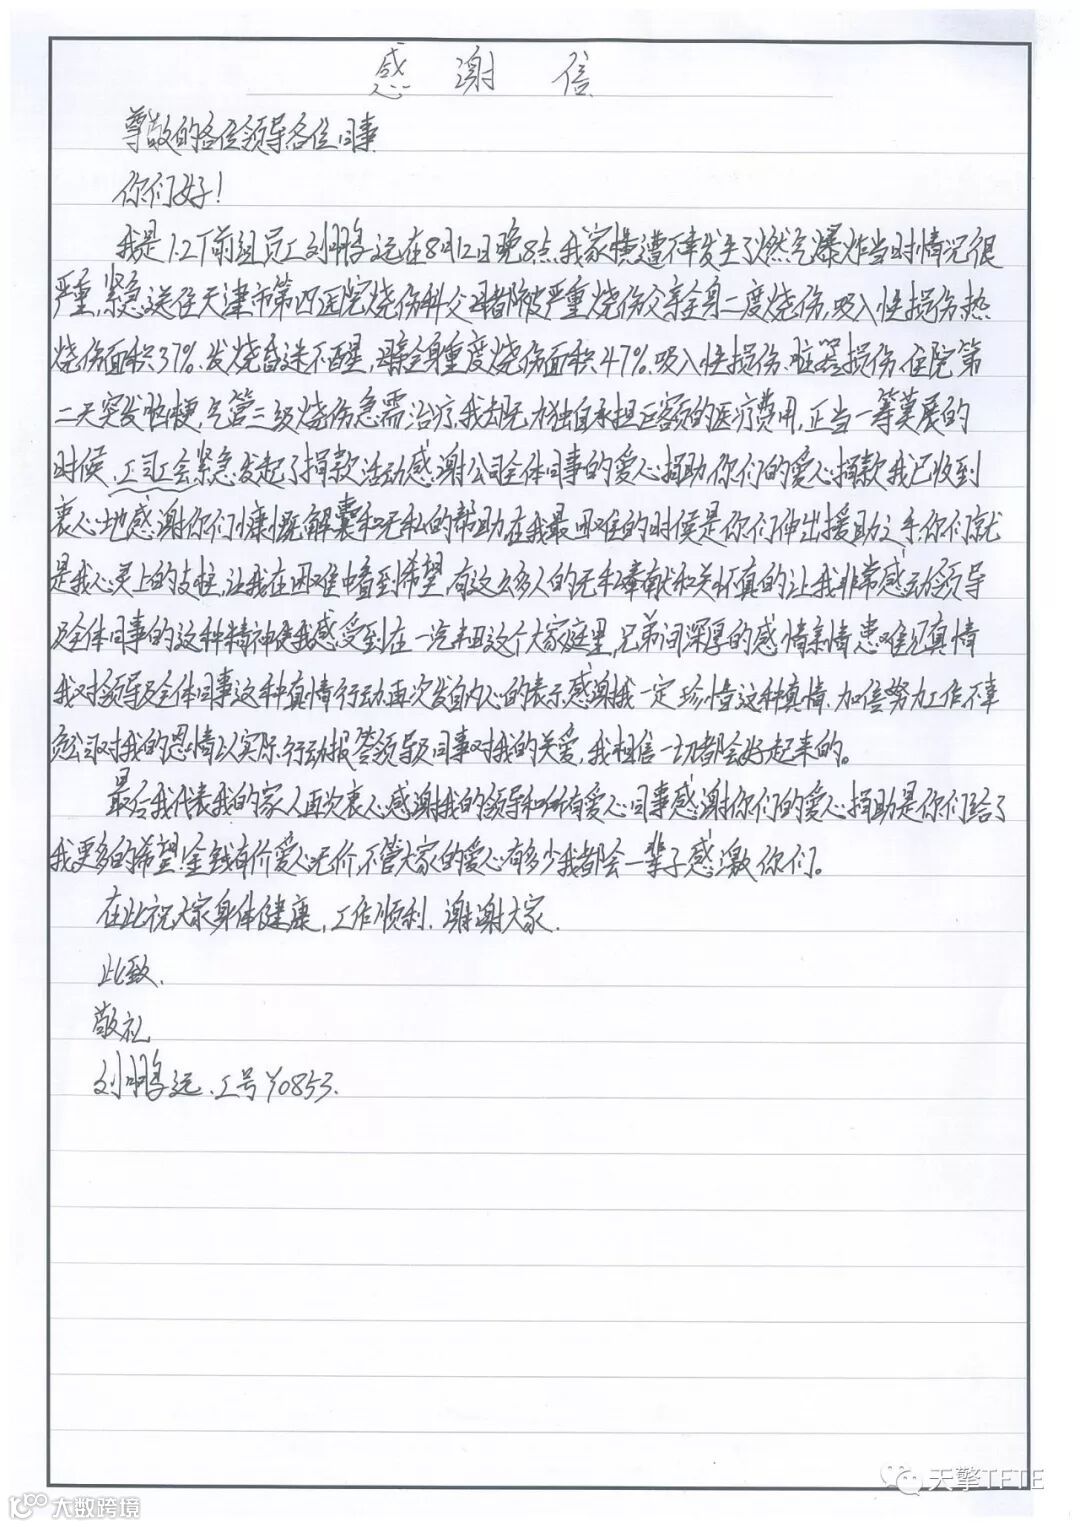 感 谢 信
尊敬的各位领导各位同事
你们好!
我是1.2T前组员工刘鹏远在8月12日晚8点,我家横遭不幸发生了燃气爆炸当时情况很
严重,紧急送往天津市第四医院烧伤科父母都被严重烧伤父亲全身二度烧伤,吸入性损伤,热
烧伤面积37%.发烧昏迷不醒,母亲全身重度烧伤面积47%.吸入性损伤、脏器损伤、住院第
二天突发脑梗,气管三级烧伤急需治疗,我却无力独自承担巨额的医疗费用,正当一筹莫展的
时候,公司工会紧急发起了捐款活动感谢公司全体同事的爱心捐助你们的爱心捐款我已收到
衷心地感谢你们慷慨解囊和无私的帮助在我最困难的时候是你们伸出援助之手,你们就
是我心灵上的支柱,让我在困难中看到希望,有这么多人的无私奉献和关怀真的让我非常感动领导
及全体同事的这种精神使我感受到在一汽丰田这个大家庭里,兄弟间深厚的感情亲情患难见真情
我对领导及全体同事这种真情行动再次发自内心的表示感谢我一定珍惜这种真情、加倍努力工作不辜
负公司对我的恩情以实际行动报答领导及同事对我的关爱,我相信一切都会好起来的。
最后我代表我的家人再次衷心感谢我的领导和所有爱心同事感谢你们的爱心捐助是你们给了
我更多的希望!金钱有价爱心无价,不管大家的爱心有多少我都会一辈子感激你们。
在此祝大家身体健康,工作顺利.谢谢大家.
此致.
敬礼
刘鹏远.工号Y0853.
天擎TETE
大数跨境